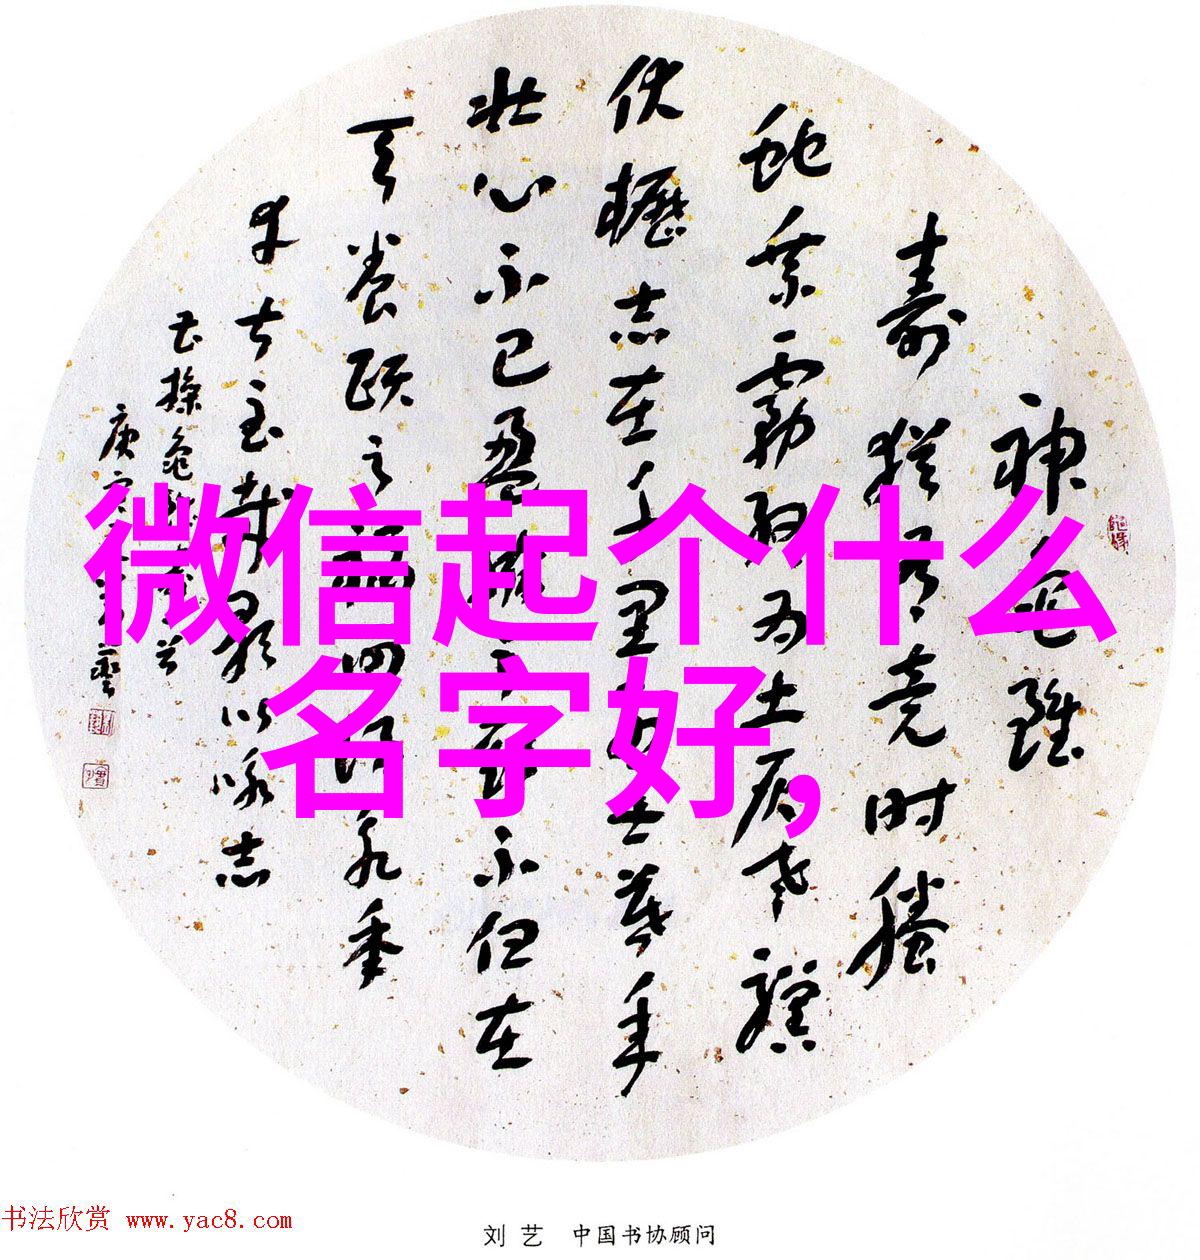 神龟虽
寿猶有竟时螣
蛇乘雾终为土灰老骥
伏櫪志在千里烈士暮年
壮心不已盈缩之期不但在
天养颐之福可得永年
幸甚至哉歌以咏志
曹操龟虽寿
庚
微信起个什么
名字好,
书法欣赏 www.yac8.com
刘艺 中国书协顾问